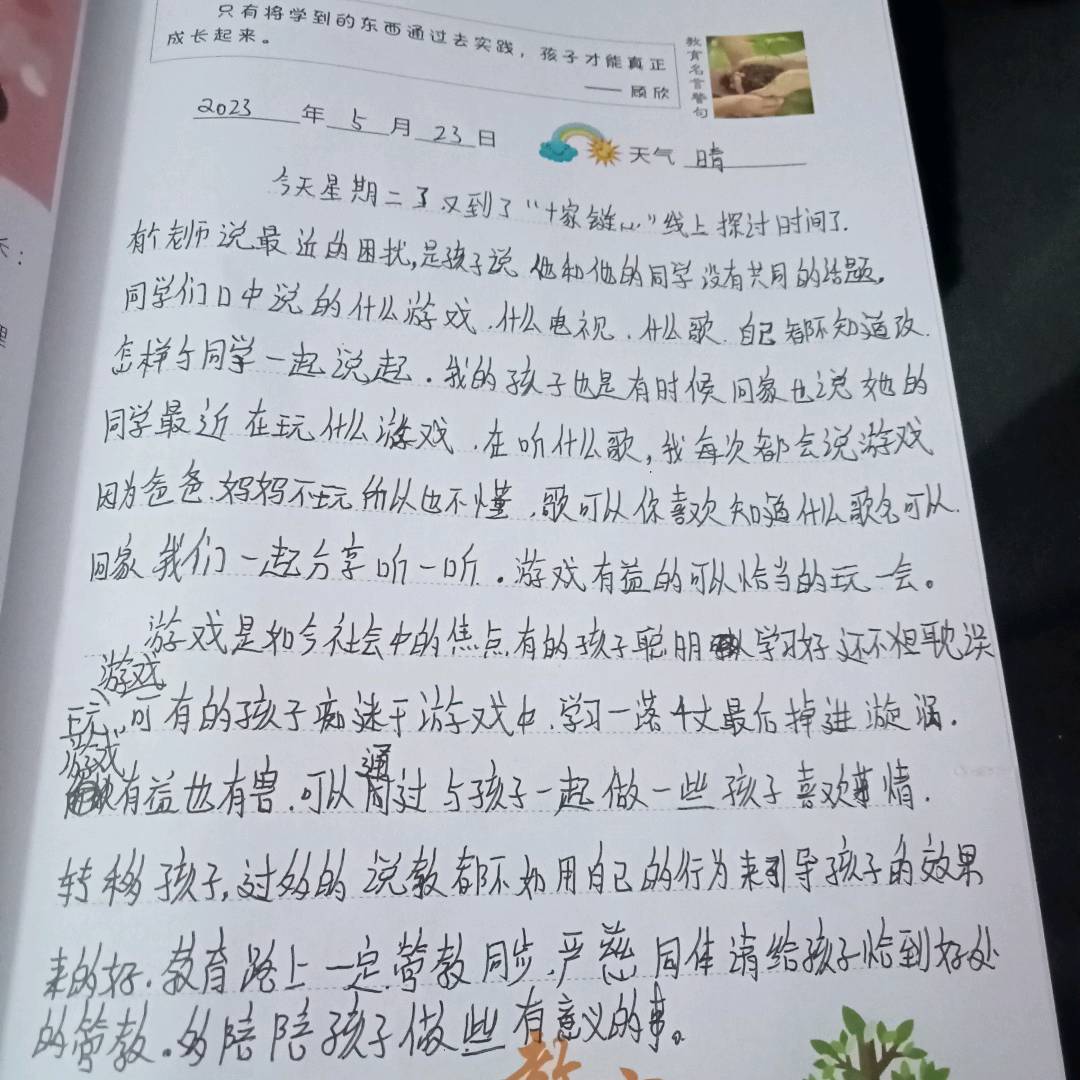 只有将学到的东西通过去实践，孩子才能真正
成长起来。
—— 顾欣
教育名言警句
2023 年 5 月 23 日
天气 晴
今天星期二了又到了“十家链心”线上探讨时间了.
有个老师说最近的困扰,是孩子说他和他的同学没有共同的话题。
同学们口中说的什么游戏.什么电视.什么歌.自己都不知道改.
怎样与同学一起说起.我的孩子也是有时候回家也说她的
同学最近在玩什么游戏.在听什么歌,我每次都会说游戏
因为爸爸.妈妈不玩所以也不懂.歌可以你喜欢知道什么歌名可以.
回家我们一起分享听一听.游戏有益的可以恰当的玩一会。
游戏是如今社会中的焦点.有的孩子聪明学习好还不但耽误
玩游戏,可有的孩子痴迷于游戏中.学习一落千丈最后掉进漩涡.
游戏有益也有害.可以通过与孩子一起做一些孩子喜欢事情.
转移孩子,过多的说教都不如用自己的行为来引导孩子的效果
来的好.教育路上一定管教同步.严慈同体请给孩子恰到好处
的管教.多陪陪孩子做些有意义的事。